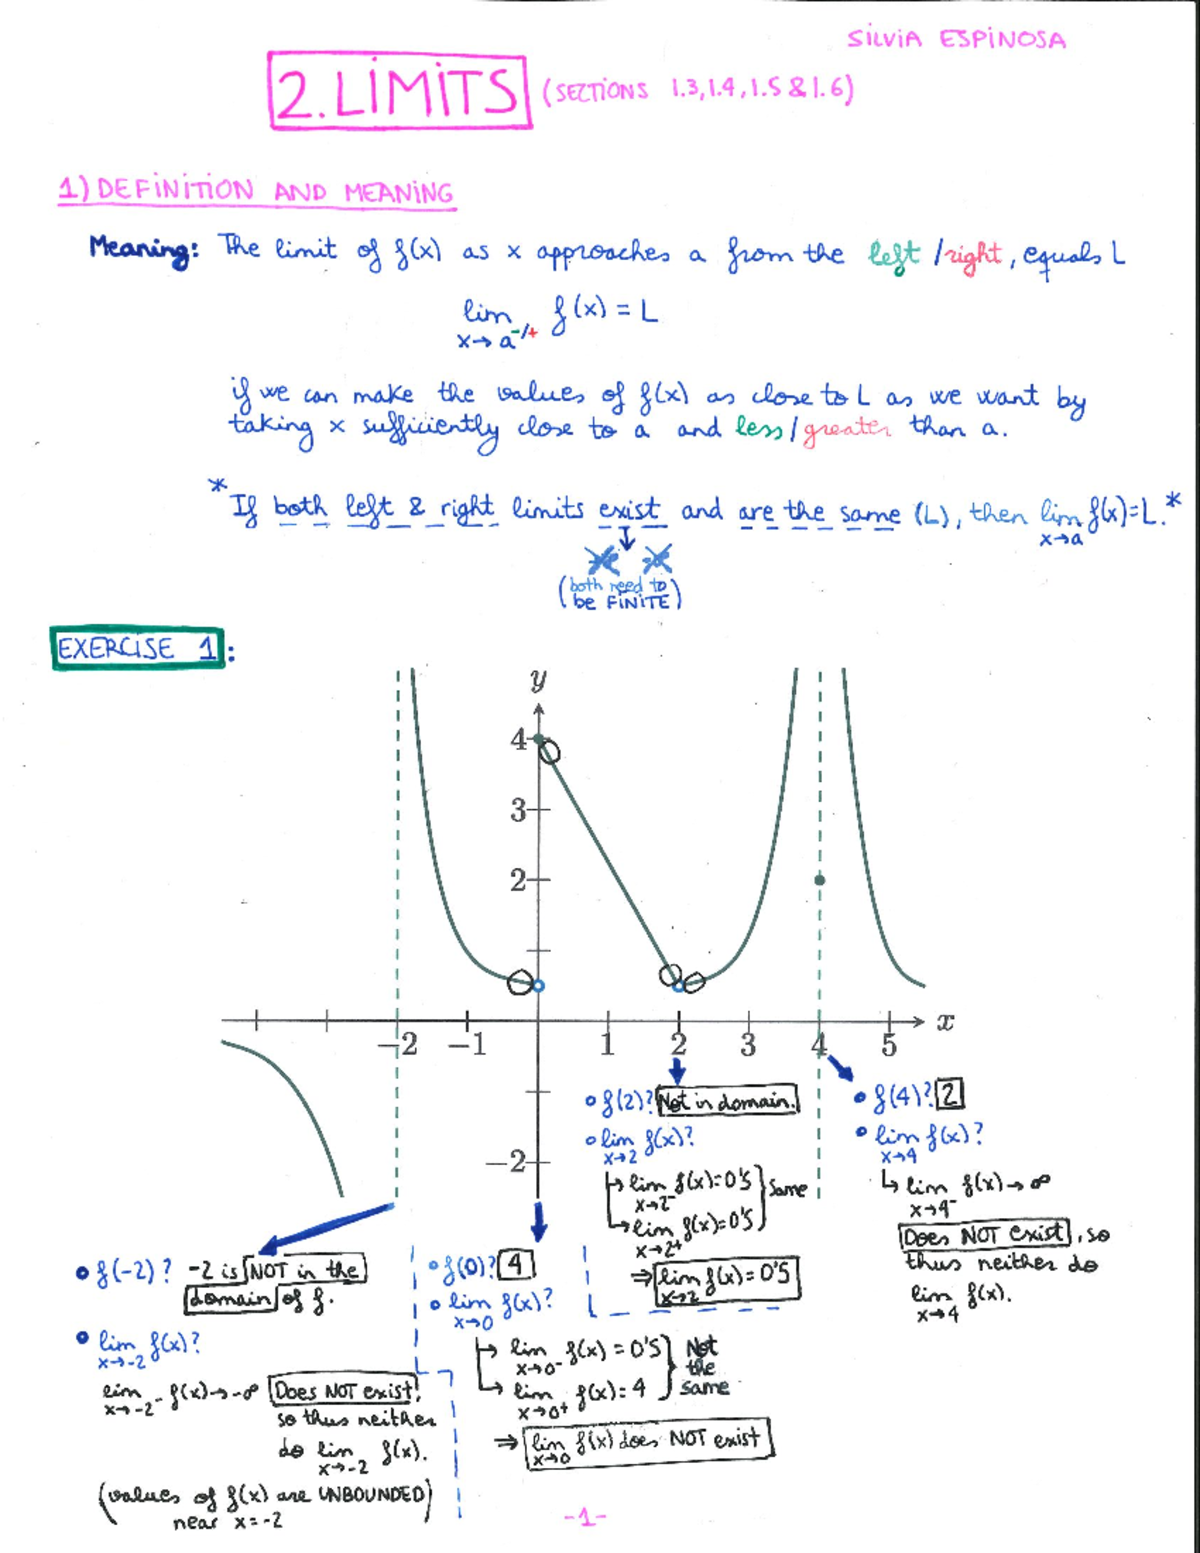 SILVIA ESPINOSA
2. LIMITS (SECTIONS 1.3, 1.4, 1.5 & 1.6)
1) DEFINITION AND MEANING
Meaning: The limit of f(x) as x approaches a from the left / right, equals L
lim f(x) = L
x→a⁻/⁺
if we can make the values of f(x) as close to L as we want by
taking x sufficiently close to a and less / greater than a.
* If both left & right limits exist and are the same (L), then lim f(x)=L. *
x→a
(both need to
be FINITE)
EXERCISE 1:
y
4
3
2
x
-2 -1 1 2 3 4 5
-2
• f(2)? Not in domain.
• lim f(x)?
x→2
↳ lim f(x)=0'5
x→2⁻
↳ lim f(x)=0'5
x→2⁺
} Same
⇒ lim f(x)=0'5
x→2
• f(4)? 2
• lim f(x)?
x→4
↳ lim f(x)→∞
x→4⁻
Does NOT exist, so
thus neither do
lim f(x).
x→4
• f(-2)? -2 is NOT in the
domain of f.
• lim f(x)?
x→-2
lim f(x)→-∞ Does NOT exist,
x→-2⁻
so thus neither
do lim f(x).
x→-2
(values of f(x) are UNBOUNDED)
near x=-2
• f(0)? 4
• lim f(x)?
x→0
↳ lim f(x) = 0'5
x→0⁻
↳ lim f(x)=4
x→0⁺
} Not
the
same
⇒ lim f(x) does NOT exist
x→0
-1-